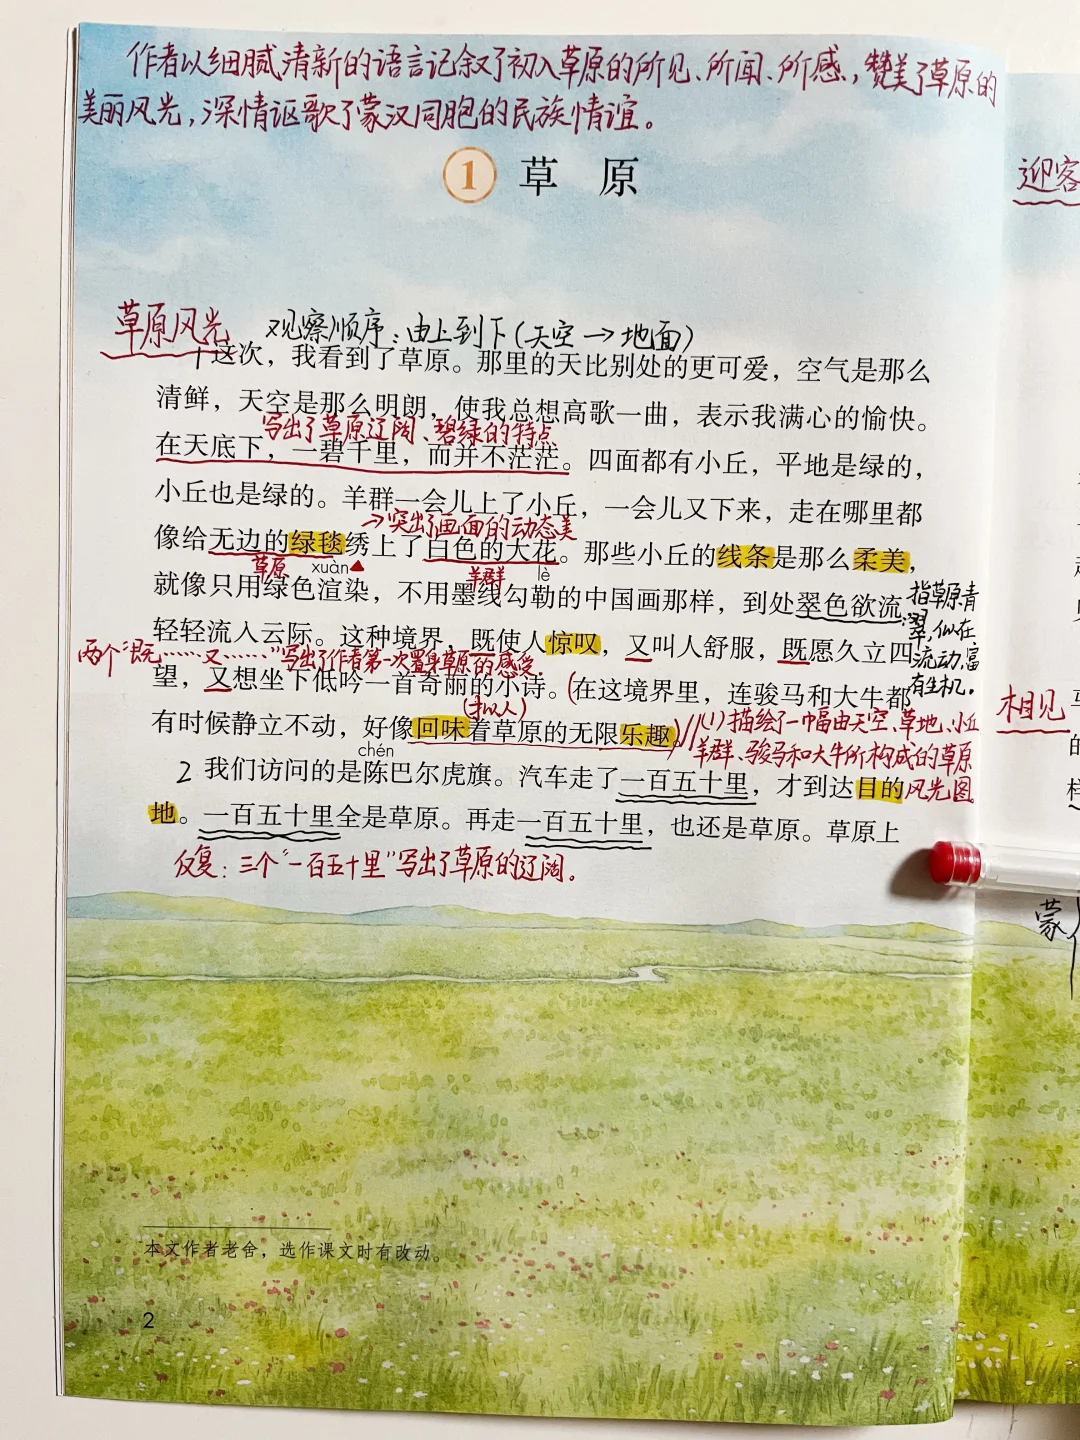 作者以细腻清新的语言记叙了初入草原的所见、所闻、所感，赞美了草原的
美丽风光，深情讴歌了蒙汉同胞的民族情谊。
1 草原
迎客
草原风光 观察顺序：由上到下（天空→地面）
1 这次，我看到了草原。那里的天比别处的更可爱，空气是那么
清鲜，天空是那么明朗，使我总想高歌一曲，表示我满心的愉快。
写出了草原辽阔、碧绿的特点
在天底下，一碧千里，而并不茫茫。四面都有小丘，平地是绿的，
小丘也是绿的。羊群一会儿上了小丘，一会儿又下来，走在哪里都
→突出了画面的动态美
像给无边的绿毯绣上了白色的大花。那些小丘的线条是那么柔美，
草原 xuàn 羊群 lè
就像只用绿色渲染，不用墨线勾勒的中国画那样，到处翠色欲流，
指草原青
翠，似在
流动，富
有生机。
轻轻流入云际。这种境界，既使人惊叹，又叫人舒服，既愿久立四
两个“既……又……”写出了作者第一次置身草原的感受。
望，又想坐下低吟一首奇丽的小诗。（在这境界里，连骏马和大牛都
（拟人）
有时候静立不动，好像回味着草原的无限乐趣。）//
(1)描绘了一幅由天空、草地、小丘
羊群、骏马和大牛所构成的草原
风光图。
相见
chén
2 我们访问的是陈巴尔虎旗。汽车走了一百五十里，才到达目的
地。一百五十里全是草原。再走一百五十里，也还是草原。草原上
反复：三个“一百五十里”写出了草原的辽阔。
蒙
本文作者老舍，选作课文时有改动。
2